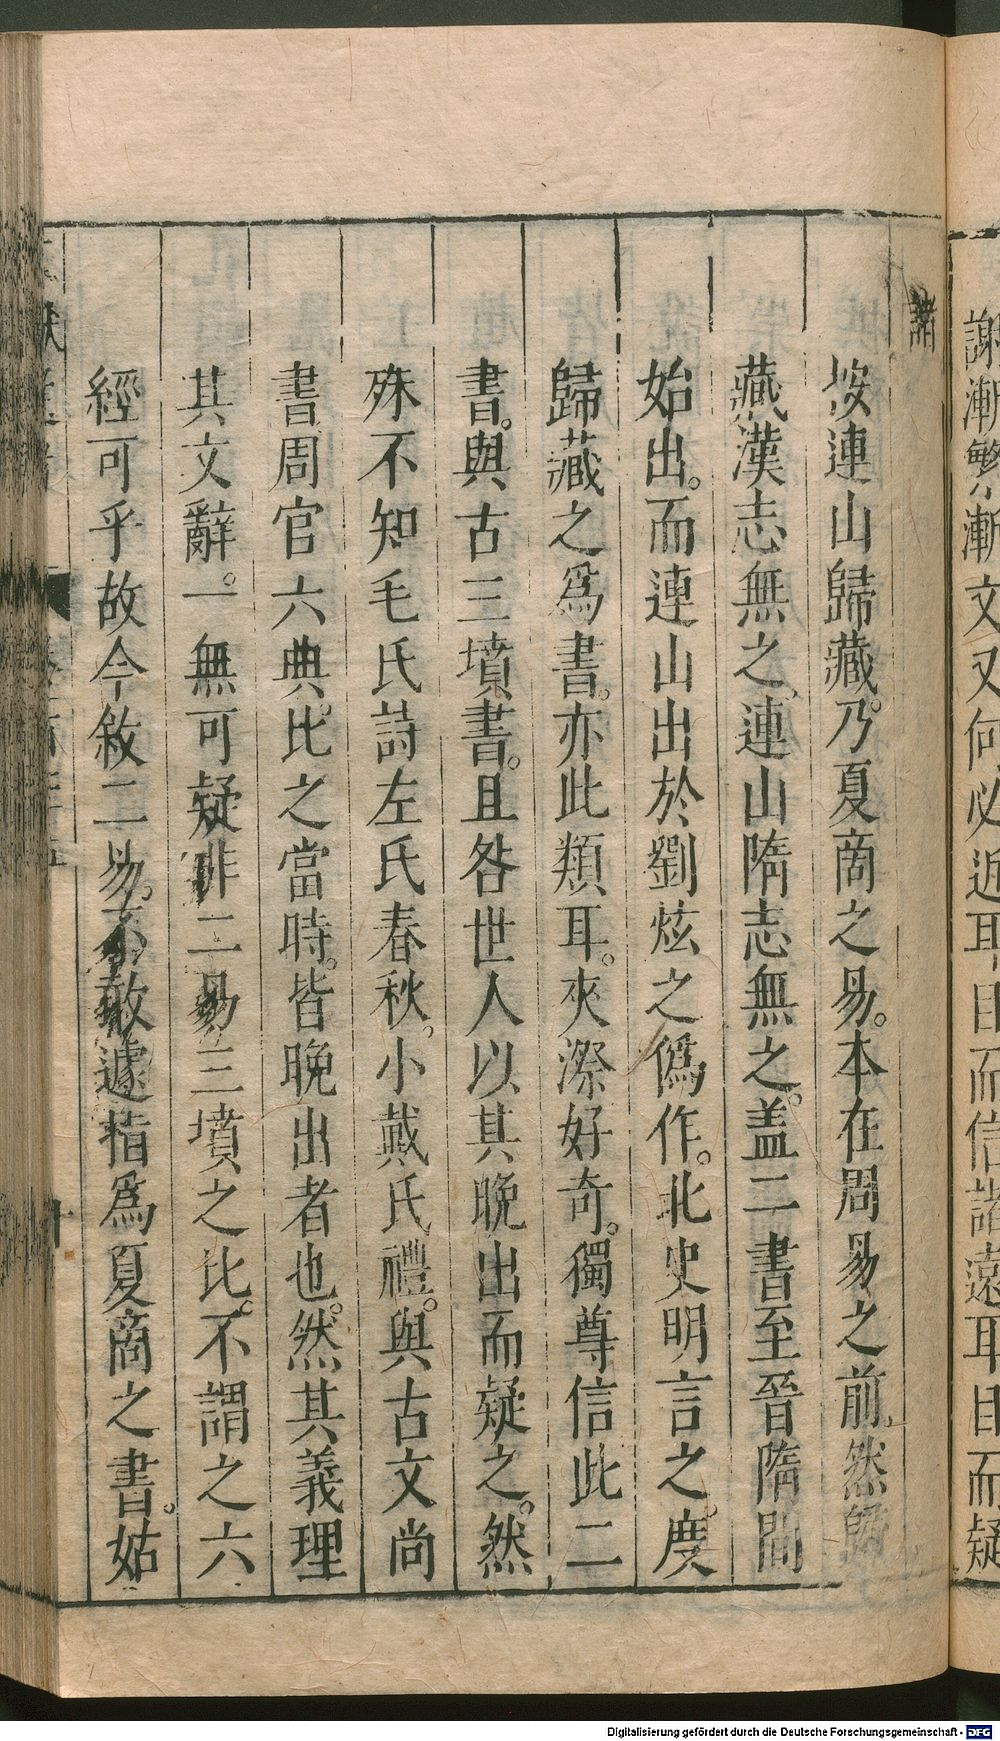 謝漸繁漸文又何必近耳目而信諸遠耳目而疑
諸
按連山歸藏乃夏商之易。本在周易之前然歸
藏漢志無之連山隋志無之。盖二書至晉隋間
始出。而連山出於劉炫之僞作。北史明言之。度
歸藏之爲書。亦此類耳。夾漈好奇。獨尊信此二
書。與古三墳書。且咎世人以其晚出而疑之。然
殊不知毛氏詩左氏春秋。小戴氏禮。與古文尚
書周官六典。比之當時。皆晚出者也。然其義理
其文辭。一無可疑非二易三墳之比。不謂之六
經可乎故今敘二易。不敢遽指爲夏商之書。姑
Digitalisierung gefördert durch die Deutsche Forschungsgemeinschaft - DFG